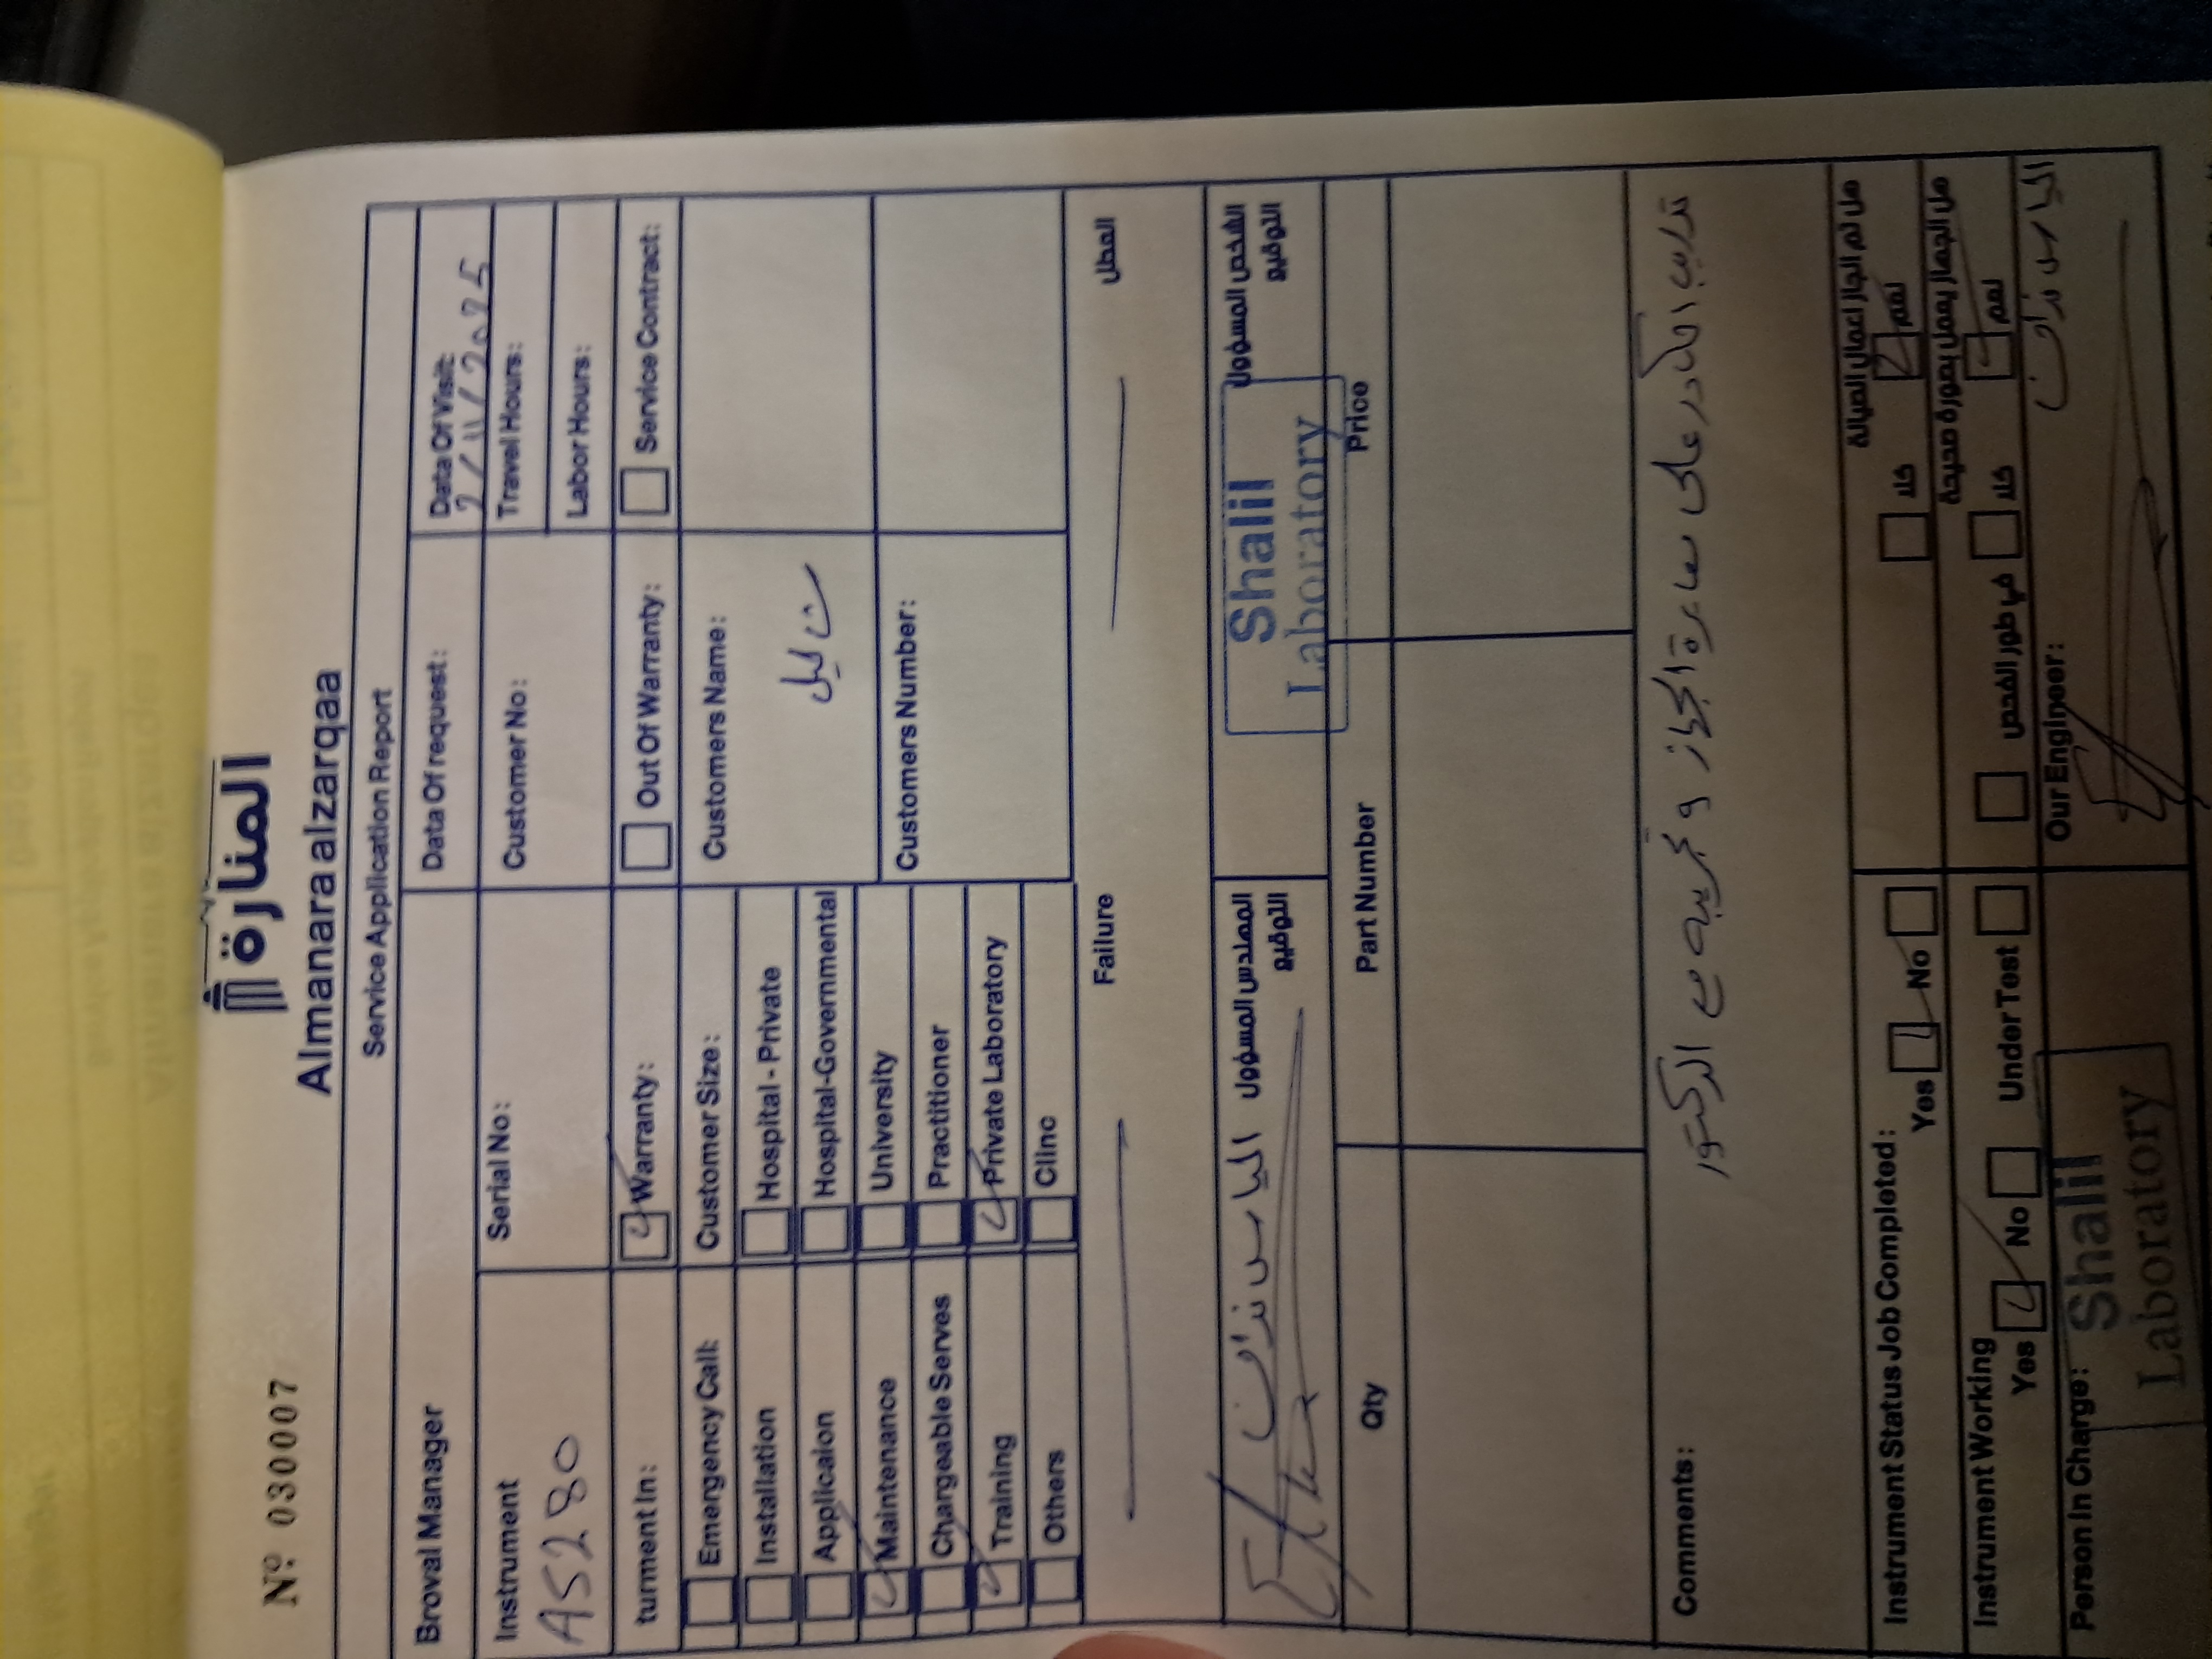 Nº 030007
المنارة
Almanara alzarqaa
Service Application Report
Broval Manager
Data Of request:
Data Of Visit:
2/11/2025
Instrument
AS280
Serial No:
Customer No:
Travel Hours:
Labor Hours:
turment In:
Warranty:
Out Of Warranty:
Service Contract:
Emergency Call:
Customer Size:
Customers Name:
Installation
Hospital - Private
Applicaion
Hospital-Governmental
Maintenance
University
Customers Number:
Chargeable Serves
Practitioner
Training
Private Laboratory
Others
Clinc
Failure
العطل
المهندس المسؤول
التوقيع
الشخص المسؤول
التوقيع
Shalil
Laboratory
Qty
Part Number
Price
Comments:
تدريب الكادر على معايرة الجهاز و تجربته مع الدكتور
Instrument Status Job Completed:
Yes
No
كلا
نعم
هل تم انجاز اعمال الصيانة
Instrument Working
Yes
No
Under Test
في طور الفحص
كلا
نعم
هل الجهاز يعمل بصورة صحيحة
Person In Charge:
Shalil
Laboratory
Our Engineer: